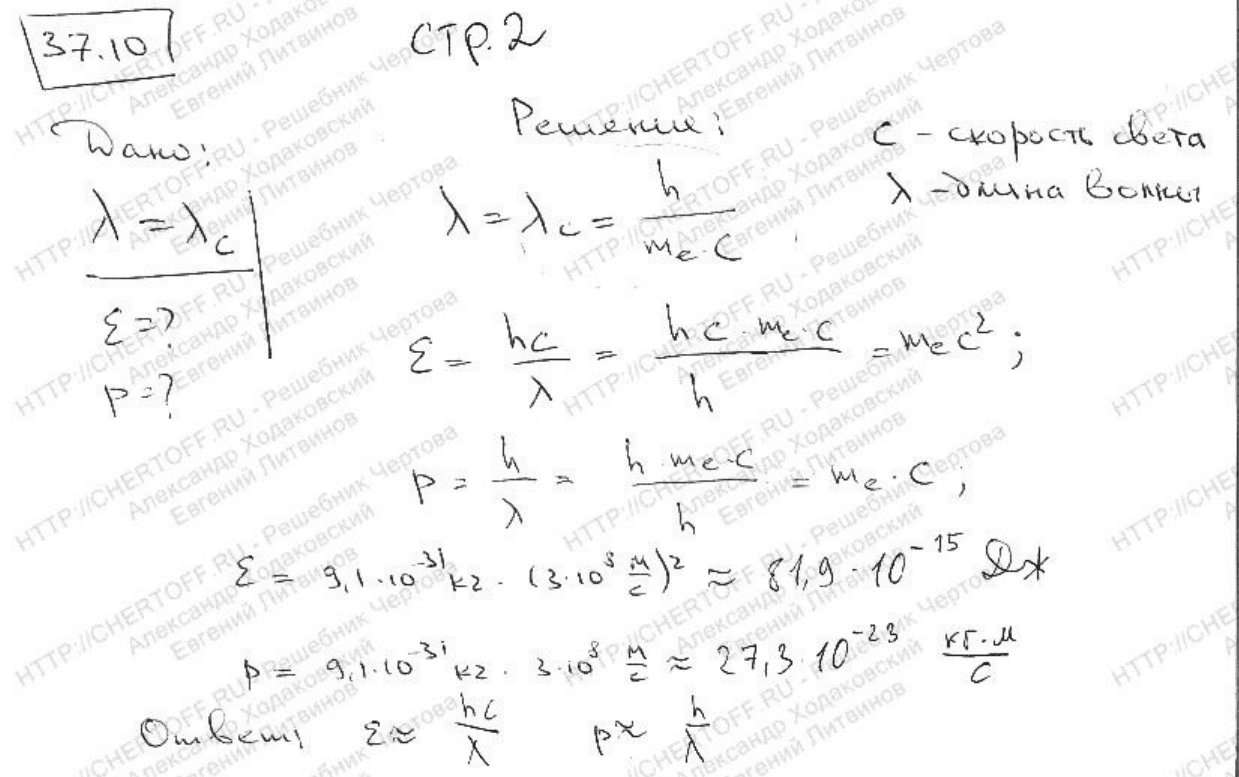 37.10 стр.2
Дано: Решение: c - скорость света
λ = λ_c λ = λ_c = h / (m_e · c) λ - длина волны
ε = ?
p = ?
ε = hc / λ = (h c · m_e · c) / h = m_e c² ;
p = h / λ = (h · m_e · c) / h = m_e · c ;
ε = 9,1 · 10⁻³¹ кг · (3 · 10⁸ м/с)² ≈ 81,9 · 10⁻¹⁵ Дж
p = 9,1 · 10⁻³¹ кг · 3 · 10⁸ м/с ≈ 27,3 · 10⁻²³ кг·м/с
Ответ: ε ≈ hc / λ p ≈ h / λ
HTTP://CHERTOFF.RU - Решебник Чертова
Александр Ходаковский
Евгений Литвинов